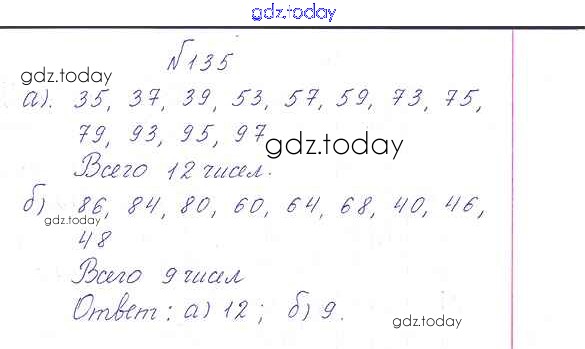 gdz.today
№135
gdz.today
а). 35, 37, 39, 53, 57, 59, 73, 75,
79, 93, 95, 97
gdz.today
Всего 12 чисел.
б) 86, 84, 80, 60, 64, 68, 40, 46,
gdz.today
48
Всего 9 чисел
Ответ: а) 12; б) 9.
gdz.today